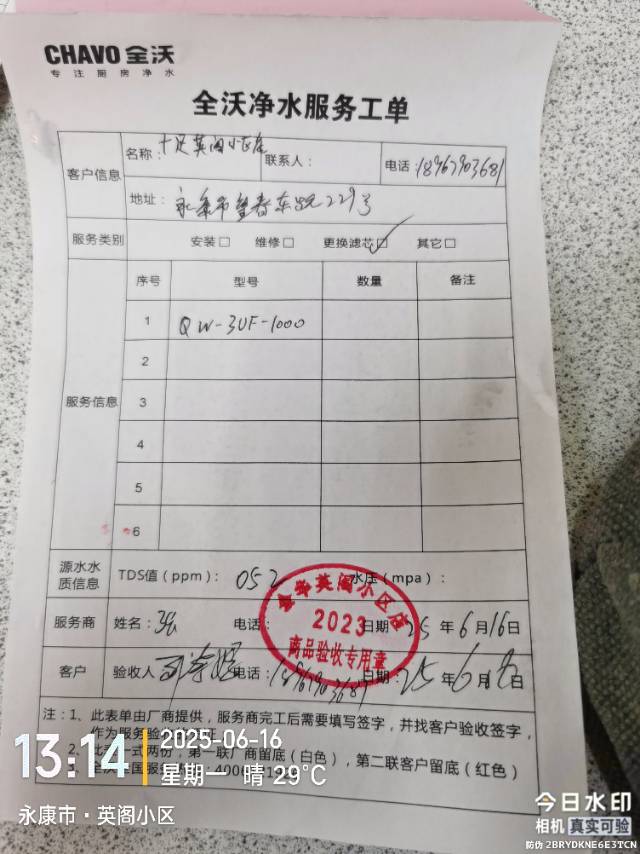 CHAVO 全沃
专注厨房净水
全沃净水服务工单
客户信息
名称：十足英阁小区店
联系人：
电话：18967903681
地址：永康市望春东路229号
服务类别
安装□ 维修□ 更换滤芯□✓ 其它□
服务信息
序号 型号 数量 备注
1 QW-3UF-1000
2
3
4
5
6
源水水质信息
TDS值（ppm）：052 水压（mpa）：
服务商 姓名：张 电话： 日期：25年6月16日
客户 验收人 电话：18967903681 日期：25年6月 日
金华英阁小区店
2023
商品验收专用章
注：1、此表单由厂商提供，服务商完工后需要填写签字，并找客户验收签字，
作为服务验
2、此 一式两份，第一联厂商留底（白色），第二联客户留底（红色）
13:14
2025-06-16
星期一 晴 29℃
永康市·英阁小区
今日水印
相机 真实可验
防伪 2BRYDKNE6E3TCN